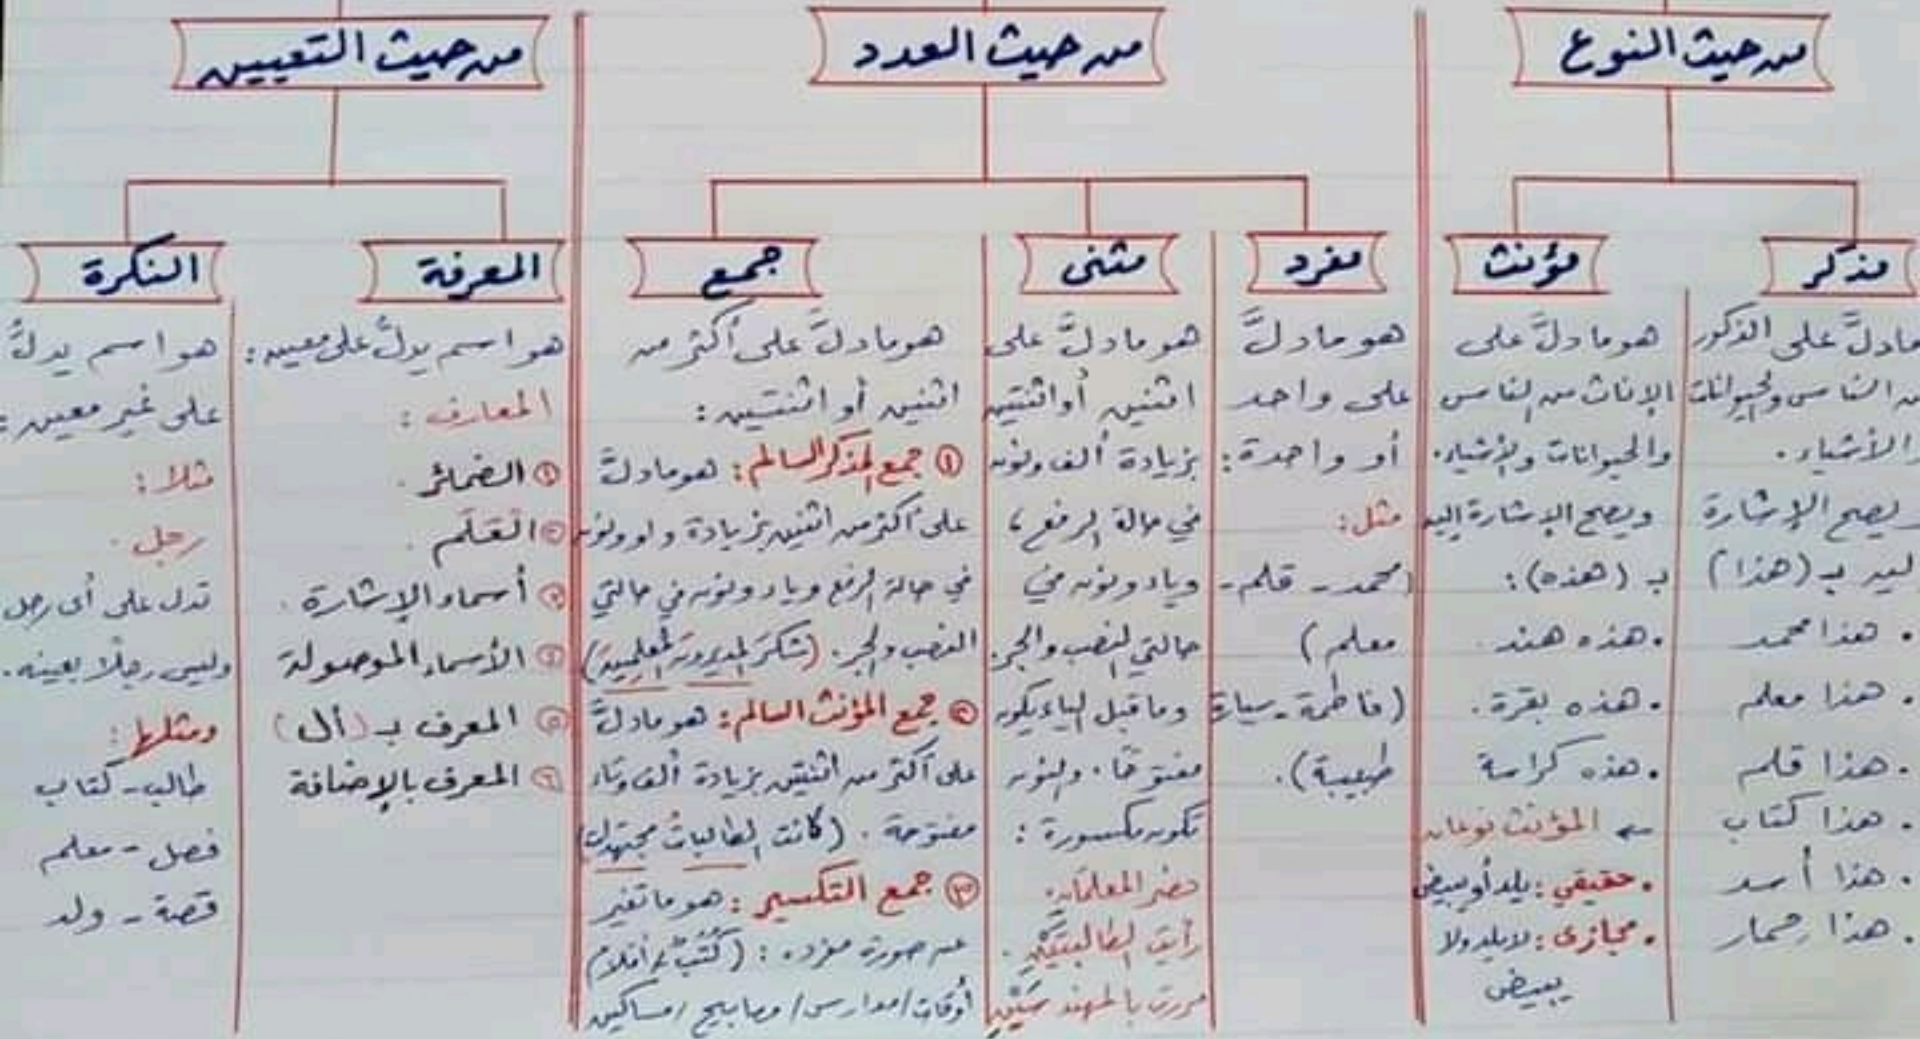 من حيث النوع
من حيث العدد
من حيث التعيين
مذكر
مؤنث
مفرد
مثنى
جمع
المعرفة
النكرة
مادلَّ على الذكور
من الناس والحيوانات
والأشياء.
ويصح الإشارة
إليه بـ (هذا)
• هذا محمد
• هذا معلم
• هذا قلم
• هذا كتاب
• هذا أسد
• هذا حمار
هو مادلَّ على
الإناث من الناس
والحيوانات والأشياء.
ويصح الإشارة إليه
بـ (هذه):
• هذه هند.
• هذه بقرة.
• هذه كراسة
المؤنث نوعان
• حقيقي: يلد أو يبيض
• مجازى: لا يلد ولا
يبيض
هو مادلَّ
على واحد
أو واحدة:
مثل:
(محمد - قلم -
معلم)
(فاطمة - سيارة
طبيبة).
هو مادلَّ على
اثنين أو اثنتين
بزيادة ألف ونون
في حالة الرفع،
وياء ونون في
حالتي النصب والجر.
وما قبل الياء يكون
مفتوحًا. والنون
تكون مكسورة:
حضر المعلمان.
رأيت الطالبتَيْنِ.
مررت بالمهندسَيْنِ
هو مادلَّ على أكثر من
اثنين أو اثنتين:
① جمع المذكر السالم: هو مادلَّ
على أكثر من اثنين بزيادة واو ونون
في حالة الرفع وياء ونون في حالتي
النصب والجر. (شكرَ المديرون المعلمين)
② جمع المؤنث السالم: هو مادلَّ
على أكثر من اثنتين بزيادة ألف وتاء
مفتوحة. (كانت الطالباتُ مجتهدات)
③ جمع التكسير: هو ما تغير
عن صورة مفرده: (كُتُبٌ / أقلام /
أوقات / مدارس / مصابيح / مساكين
هو اسم يدلُّ على معين:
المعارف:
① الضمائر.
② العَلَم.
③ أسماء الإشارة.
④ الأسماء الموصولة
⑤ المعرف بـ (أل)
⑥ المعرف بالإضافة
هو اسم يدلُّ
على غير معين:
مثلا:
رجل.
تدل على أى رجل
وليس رجلًا بعينه.
ومثلها:
طالب - كتاب
فصل - معلم
قصة - ولد